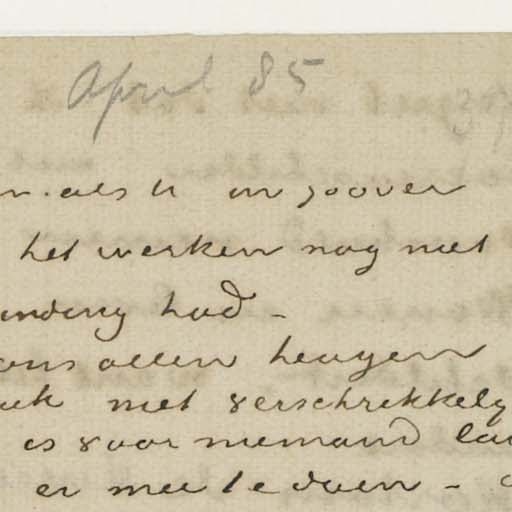 April 85
als U in zoover
het werken nog niet
had –
ons allen heugen
niet verschrikkelij
is voor niemand
er mee te doen –